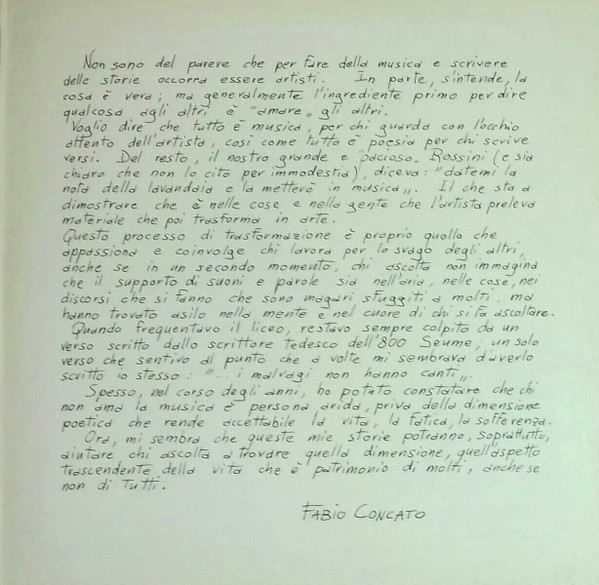 Non sono del parere che per fare della musica e scrivere
delle storie occorra essere artisti. In parte, s'intende, la
cosa è vera; ma generalmente l'ingrediente primo per dire
qualcosa agli altri è "amare„ gli altri.
Voglio dire che tutto è musica, per chi guarda con l'occhio
attento dell'artista, così come tutto è poesia per chi scrive
versi. Del resto, il nostro grande e "pacioso„ Rossini (e sia
chiaro che non lo cito per immodestia), diceva: "datemi la
nota della lavandaia e la metterò in musica„. Il che sta a
dimostrare che è nelle cose e nella gente che l'artista preleva
materiale che poi trasforma in arte.
Questo processo di trasformazione è proprio quello che
appassiona e coinvolge chi lavora per lo svago degli altri,
anche se in un secondo momento, chi ascolta non immagina
che il supporto di suoni e parole sia nell'aria, nelle cose, nei
discorsi che si fanno che sono magari sfuggiti a molti, ma
hanno trovato asilo nella mente e nel cuore di chi si fa ascoltare.
Quando frequentavo il liceo, restavo sempre colpito da un
verso scritto dallo scrittore tedesco dell'800 Seume, un solo
verso che sentivo al punto che a volte mi sembrava d'averlo
scritto io stesso: "... i malvagi non hanno canti„.
Spesso, nel corso degli anni, ho potuto constatare che chi
non ama la musica è persona arida, priva della dimensione
poetica che rende accettabile la vita, la fatica, la sofferenza.
Ora, mi sembra che queste mie storie potranno, soprattutto,
aiutare chi ascolta a trovare quella dimensione, quell'aspetto
trascendente della vita che è patrimonio di molti, anche se
non di tutti.
FABIO CONCATO